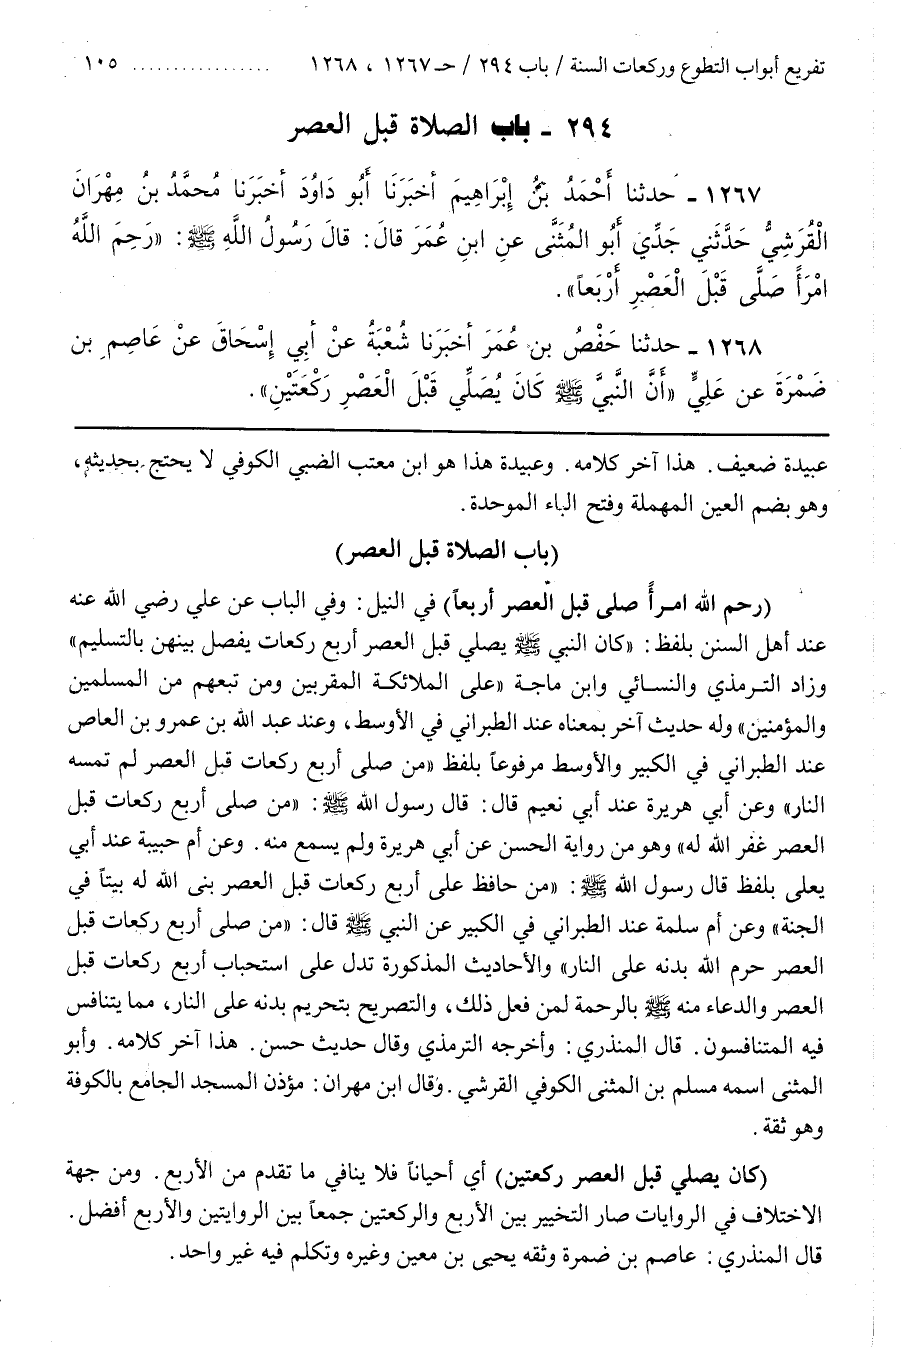 تفريع أبواب التطوع وركعات السنة / باب ٢٩٤ / حـ ١٢٦٧ ، ١٢٦٨ ................. ١٠٥
٢٩٤ ـ باب الصلاة قبل العصر
١٢٦٧ ـ حدثنا أَحْمَدُ بنُ إِبْرَاهِيمَ أخبَرَنَا أَبُو دَاوُدَ أخبَرَنا مُحمَّدُ بنُ مِهْرَانَ
الْقُرَشِيُّ حَدَّثَني جَدِّي أَبُو المُثَنَّى عنِ ابنِ عُمَرَ قالَ: قالَ رَسُولُ اللَّهِ ﷺ: «رَحِمَ اللَّهُ
امْرَأً صَلَّى قَبْلَ الْعَصْرِ أَرْبَعاً».
١٢٦٨ ـ حدثنا حَفْصُ بن عُمَرَ أخبَرَنا شُعْبَةُ عنْ أبي إِسْحَاقَ عنْ عَاصِمِ بن
ضَمْرَةَ عن عَلِيٍّ «أَنَّ النَّبيَّ ﷺ كَانَ يُصَلِّي قَبْلَ الْعَصْرِ رَكْعَتَيْنِ».
عبيدة ضعيف. هذا آخر كلامه. وعبيدة هذا هو ابن معتب الضبي الكوفي لا يحتج بحديثه،
وهو بضم العين المهملة وفتح الباء الموحدة.
(باب الصلاة قبل العصر)
(رحم الله امرأً صلى قبل العصر أربعاً) في النيل: وفي الباب عن علي رضي الله عنه
عند أهل السنن بلفظ: «كان النبي ﷺ يصلي قبل العصر أربع ركعات يفصل بينهن بالتسليم»
وزاد الترمذي والنسائي وابن ماجة «على الملائكة المقربين ومن تبعهم من المسلمين
والمؤمنين» وله حديث آخر بمعناه عند الطبراني في الأوسط، وعند عبد الله بن عمرو بن العاص
عند الطبراني في الكبير والأوسط مرفوعاً بلفظ «من صلى أربع ركعات قبل العصر لم تمسه
النار» وعن أبي هريرة عند أبي نعيم قال: قال رسول الله ﷺ: «من صلى أربع ركعات قبل
العصر غفر الله له» وهو من رواية الحسن عن أبي هريرة ولم يسمع منه. وعن أم حبيبة عند أبي
يعلى بلفظ قال رسول الله ﷺ: «من حافظ على أربع ركعات قبل العصر بنى الله له بيتاً في
الجنة» وعن أم سلمة عند الطبراني في الكبير عن النبي ﷺ قال: «من صلى أربع ركعات قبل
العصر حرم الله بدنه على النار» والأحاديث المذكورة تدل على استحباب أربع ركعات قبل
العصر والدعاء منه ﷺ بالرحمة لمن فعل ذلك، والتصريح بتحريم بدنه على النار، مما يتنافس
فيه المتنافسون. قال المنذري: وأخرجه الترمذي وقال حديث حسن. هذا آخر كلامه. وأبو
المثنى اسمه مسلم بن المثنى الكوفي القرشي. وقال ابن مهران: مؤذن المسجد الجامع بالكوفة
وهو ثقة.
(كان يصلي قبل العصر ركعتين) أي أحياناً فلا ينافي ما تقدم من الأربع. ومن جهة
الاختلاف في الروايات صار التخيير بين الأربع والركعتين جمعاً بين الروايتين والأربع أفضل.
قال المنذري: عاصم بن ضمرة وثقه يحيى بن معين وغيره وتكلم فيه غير واحد.